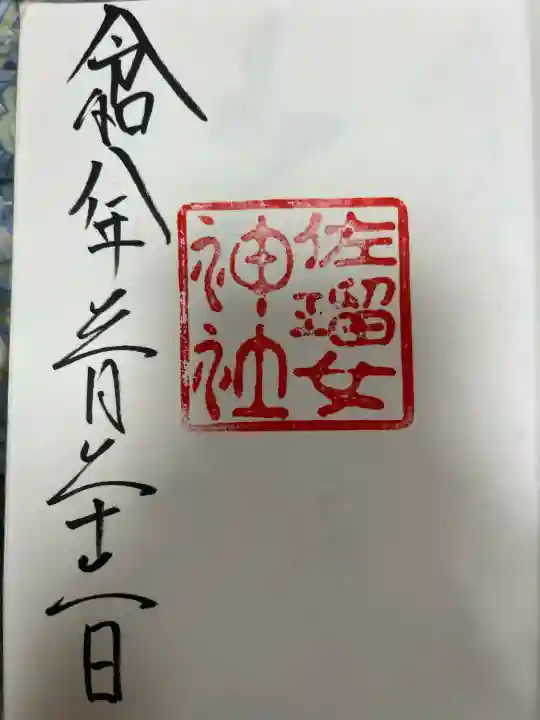 佐瑠女
神社
令和八年三月二十一日